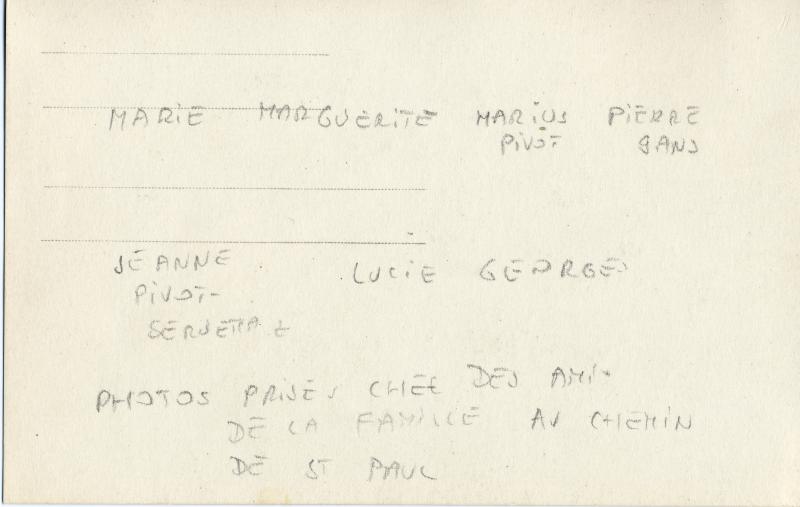 MARIE MARGUERITE MARIUS PIERRE
PIVOT GANS
JEANNE LUCIE GEORGES
PIVOT-
PHOTOS PRISES CHEZ DES AMIS
DE LA FAMILLE AU CHEMIN
DE ST PAUL